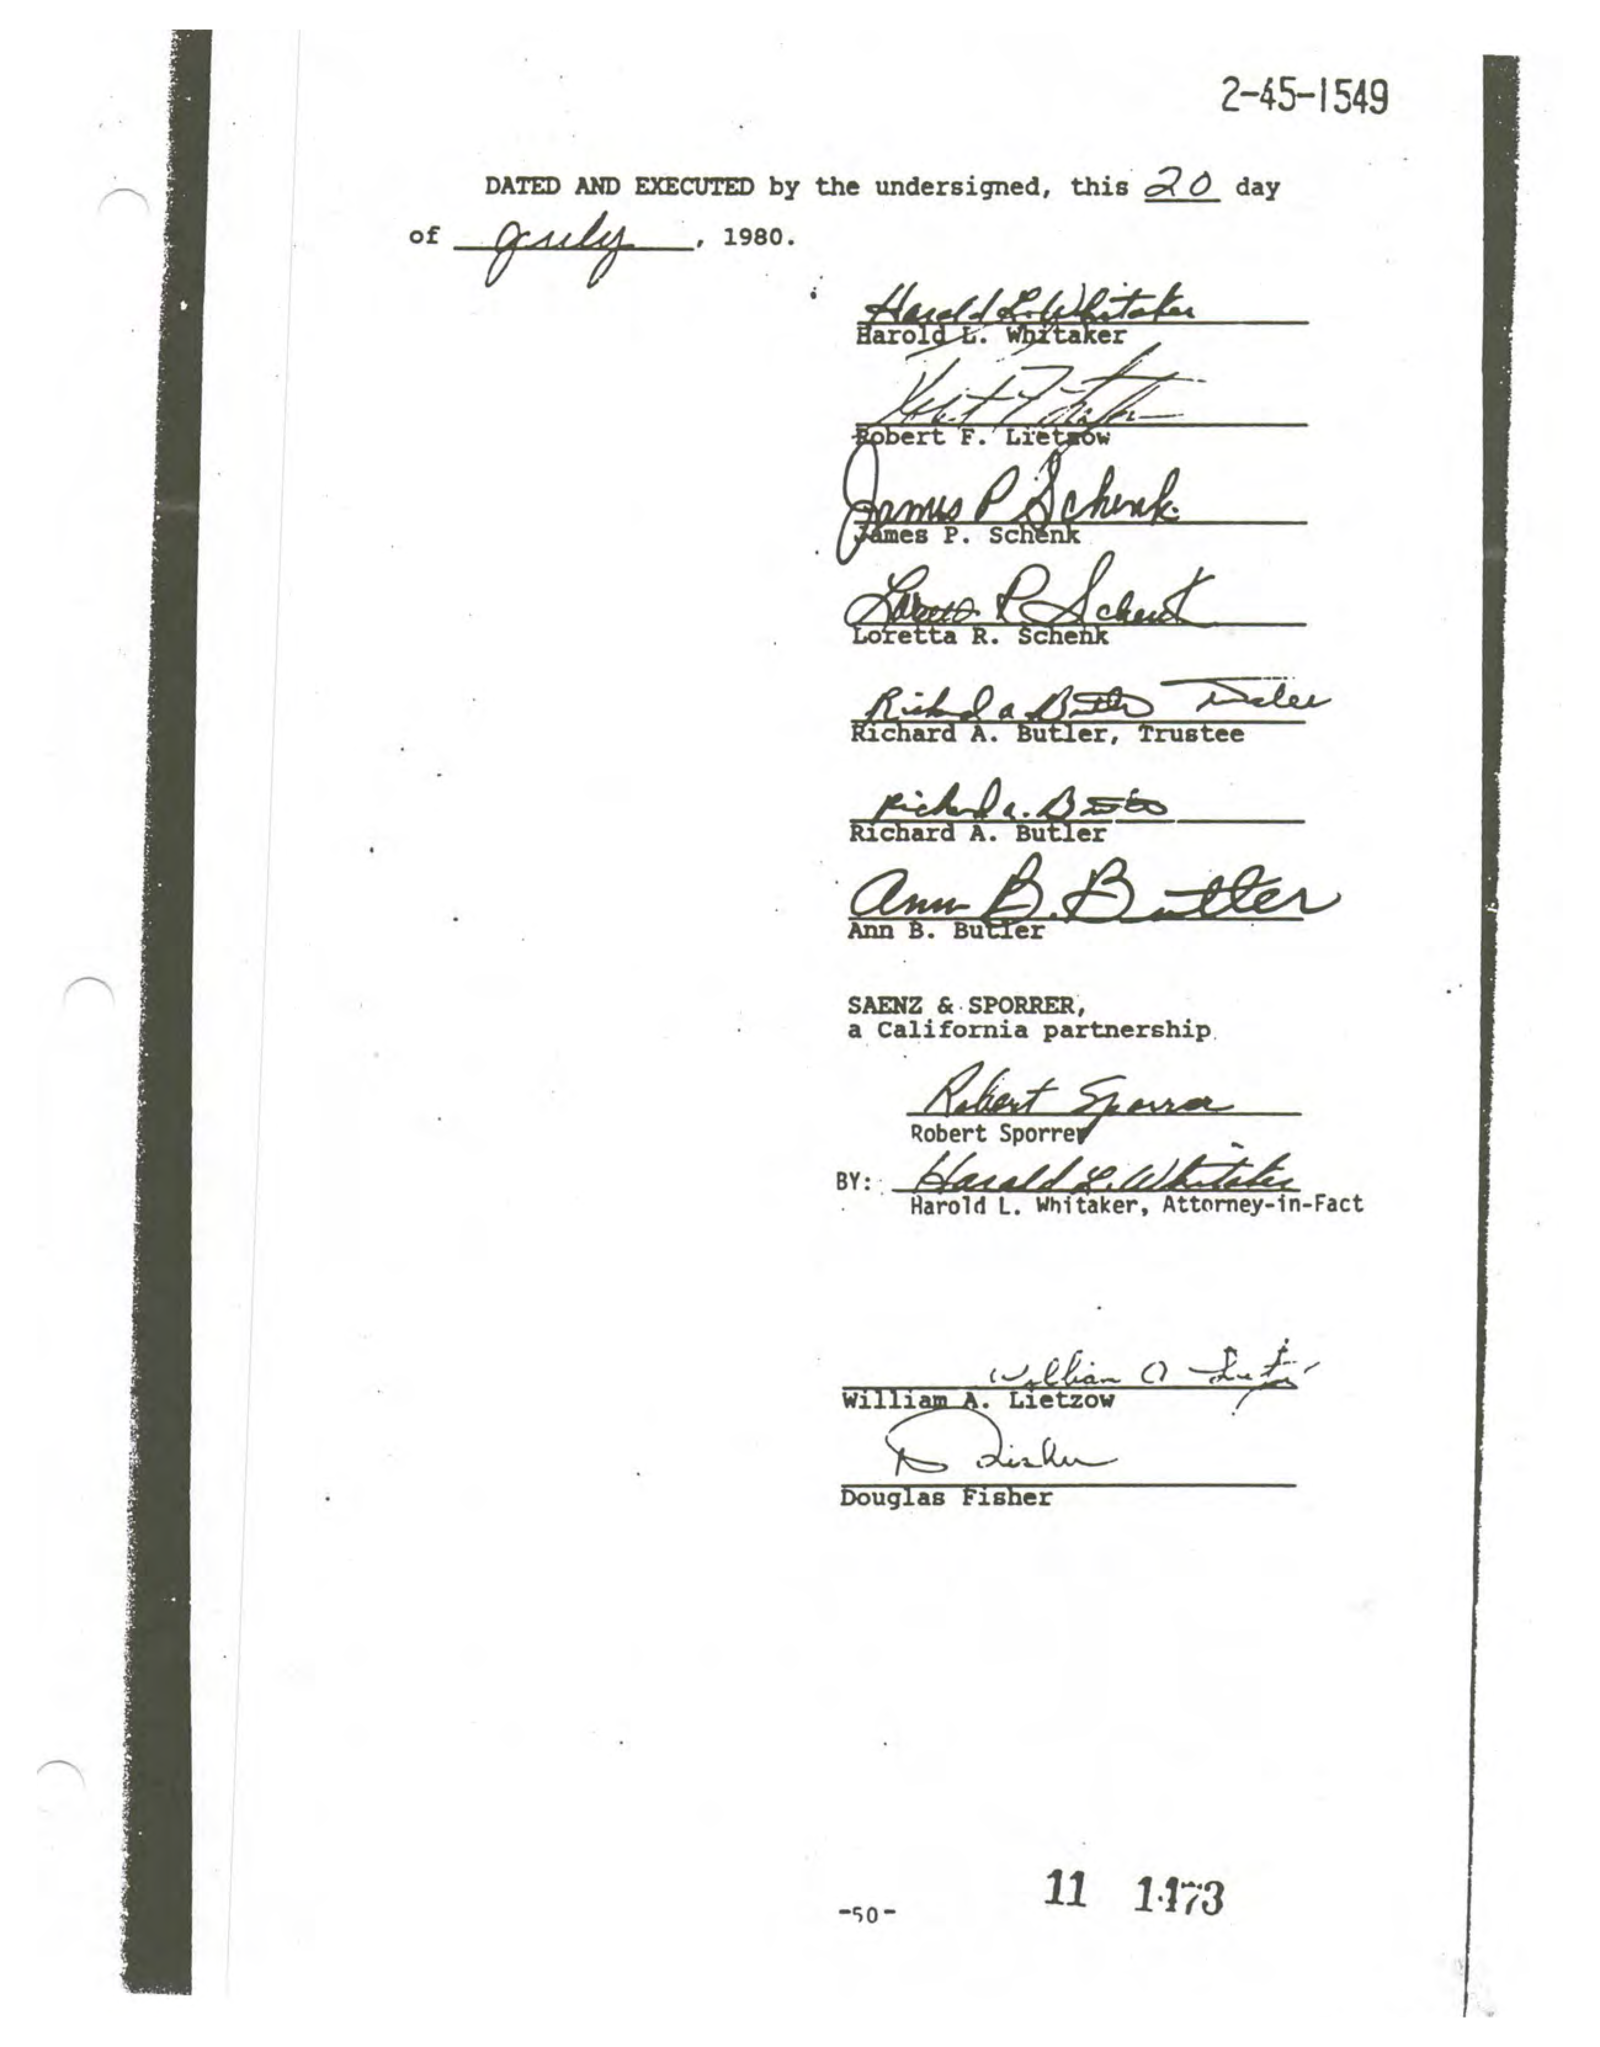 2-45-1549
DATED AND EXECUTED by the undersigned, this 20 day
of July, 1980.
Harold L. Whitaker
Harold L. Whitaker
Robert F. Lietzow
James P Schenk
James P. Schenk
Loretta R Schenk
Loretta R. Schenk
Richard A Butler Trustee
Richard A. Butler, Trustee
Richard A. Butler
Richard A. Butler
Ann B. Butler
Ann B. Butler
SAENZ & SPORRER,
a California partnership
Robert Sporrer
Robert Sporrer
BY: Harold L. Whitaker
Harold L. Whitaker, Attorney-in-Fact
William A
William A. Lietzow
D Fisher
Douglas Fisher
-50-
11 1473